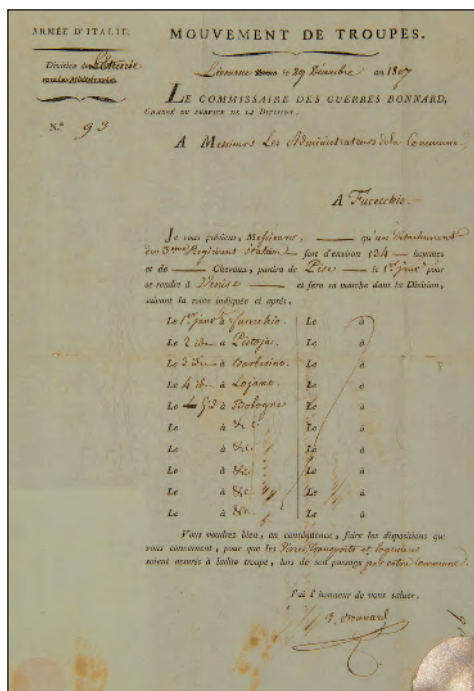 ARMÉE D'ITALIE.
MOUVEMENT DE TROUPES.
Division de l'Etrurie
Livourne le 29 Décembre an 1807
LE COMMISSAIRE DES GUERRES BONNARD,
CHARGÉ DU SERVICE DE LA DIVISION.
N.° 93
A Messieurs Les Administrateurs de la Commune
A Fucecchio.
Je vous préviens, Messieurs, qu'un détachement
du 3.eme Régiment italien fort d'environ 134 hommes
et de Chevaux, partira de Pise le 1.er janv.r pour
se rendre à Venise et fera sa marche dans la Division,
suivant la route indiquée ci après,
Le 1.er janv.r à fucechio. Le à
Le 2 id à Pistoja. Le à
Le 3 id à Barberino. Le à
Le 4 id à Lojano. Le à
Le 5 id à Bologne Le à
Le à &c Le à
Le à &c Le à
Le à &c Le à
Le à &c Le à
Le à &c Le à
Vous voudrez bien, en conséquence, faire les dispositions qui
vous concernent, pour que les Vivres, Transports et logemens
soient assurés à ladite troupe, lors de son passage par votre Commune.
J'ai l'honneur de vous saluer.
Bonnard